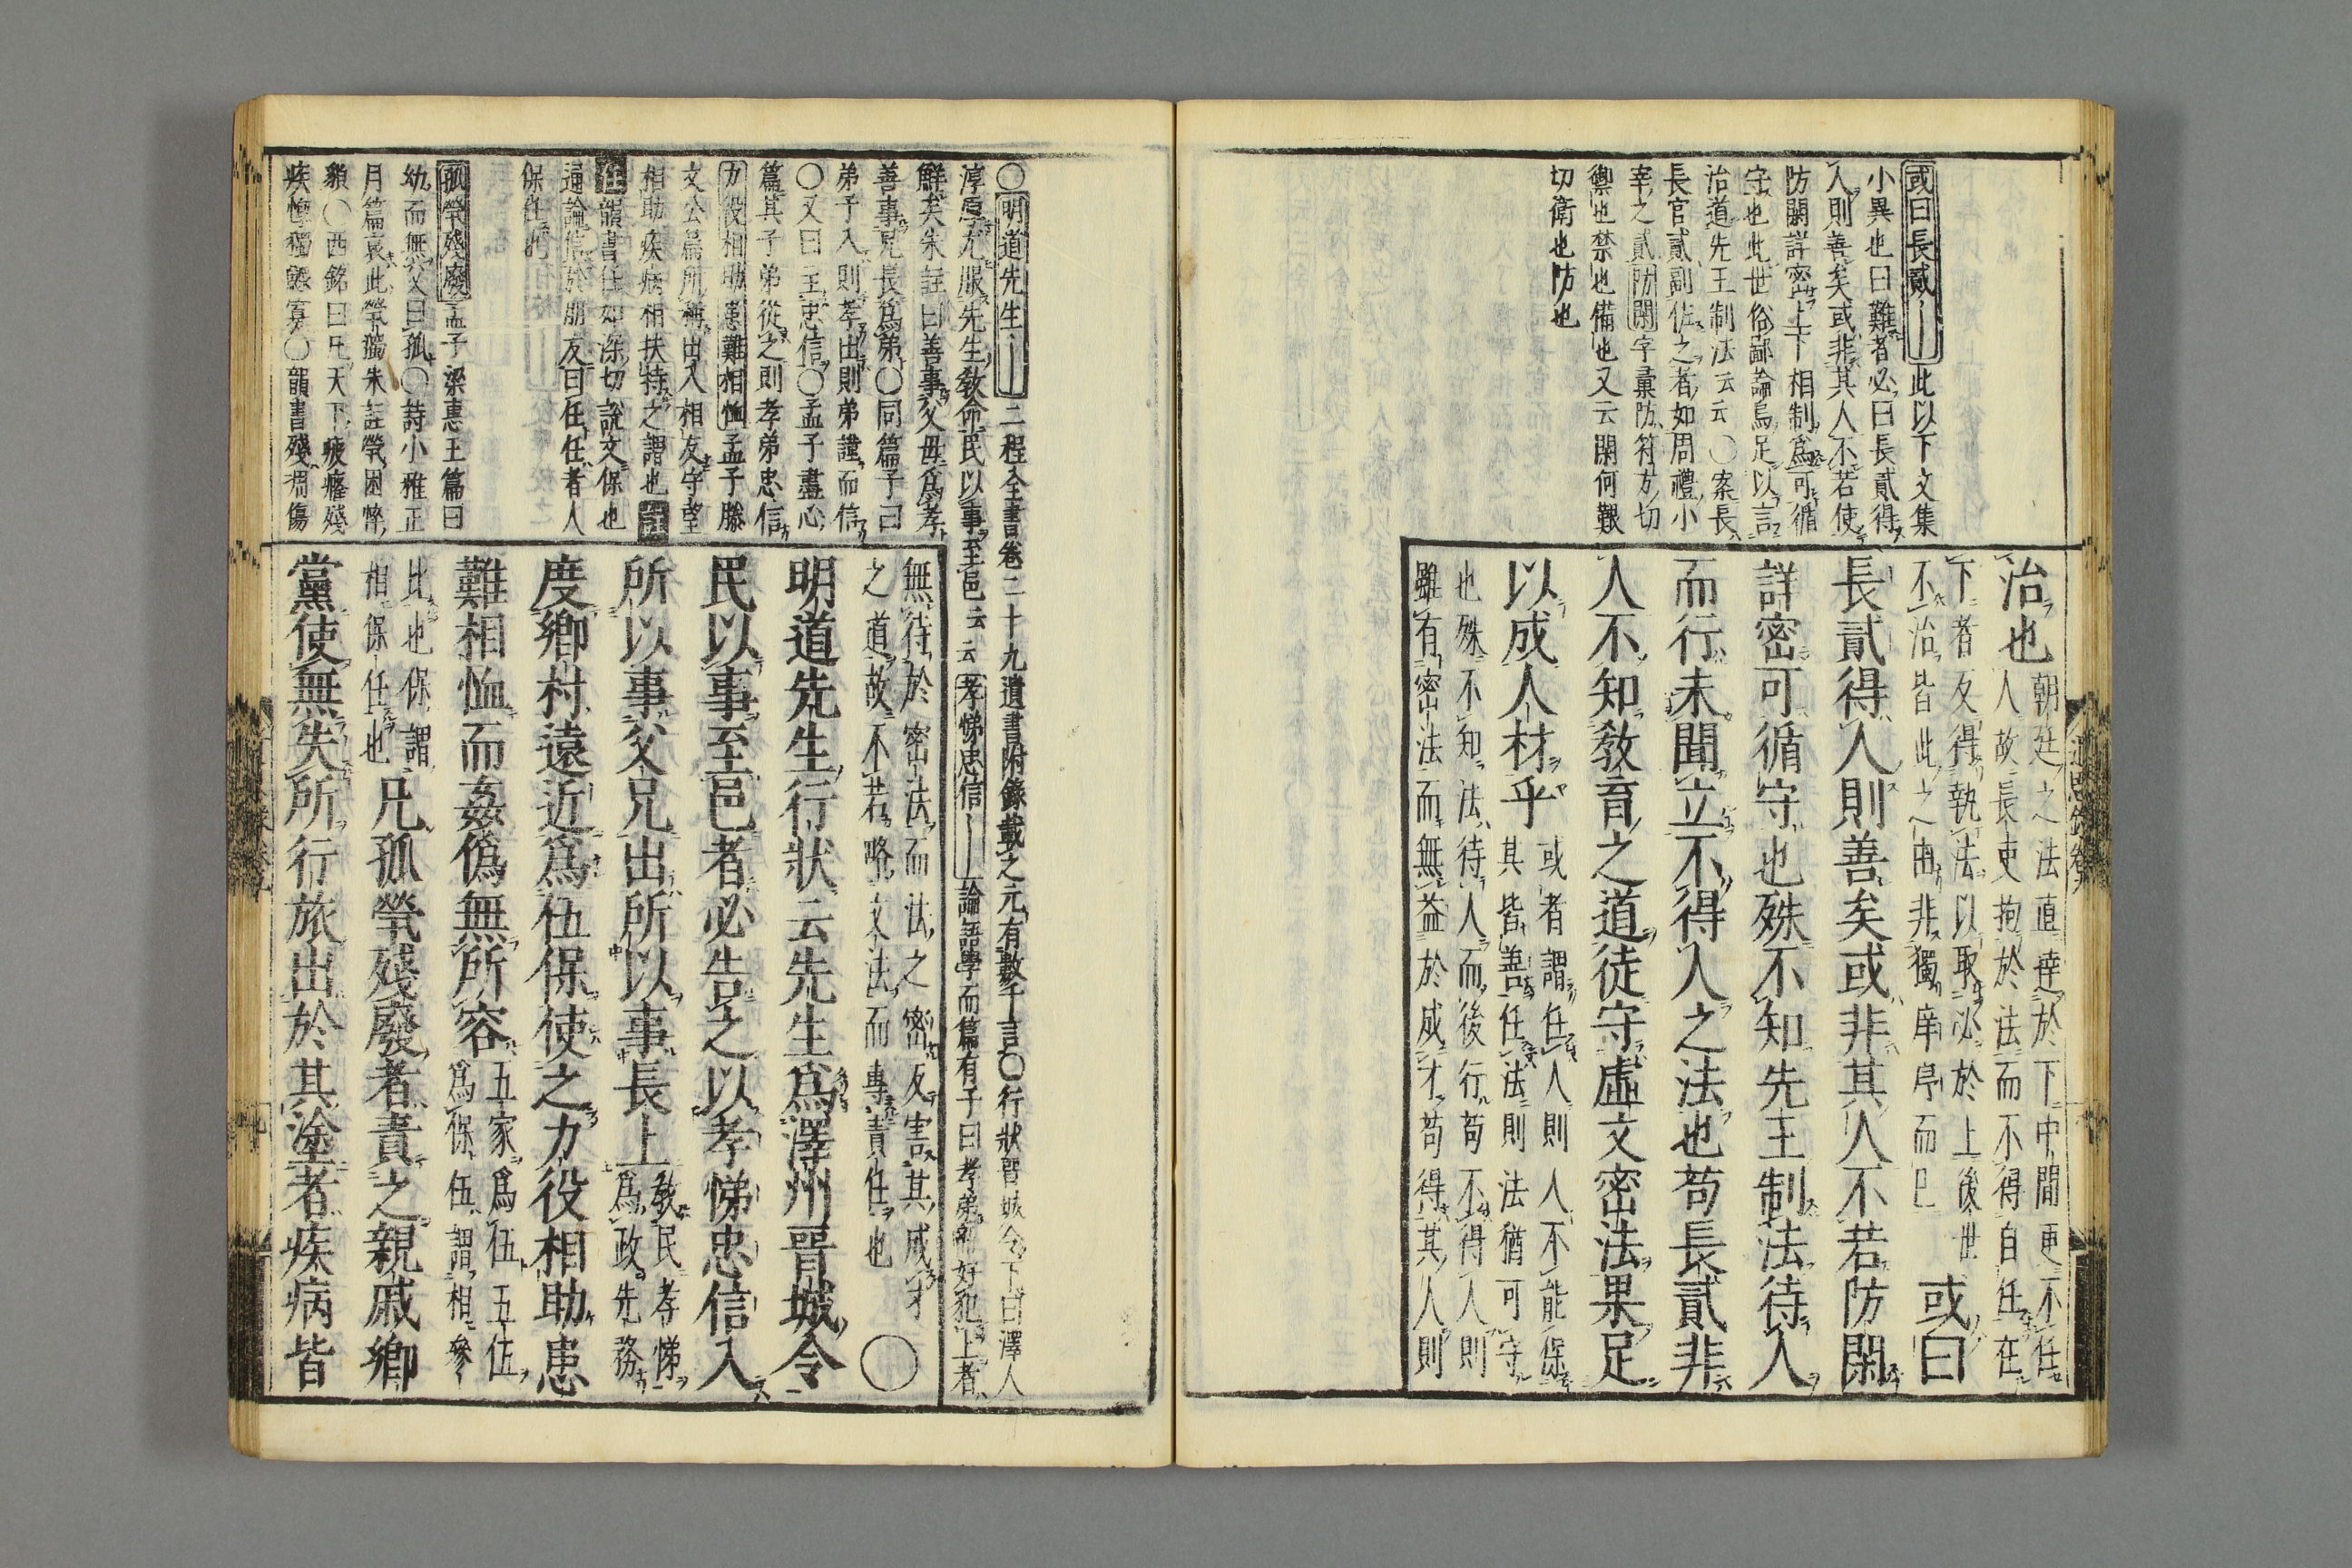 或曰長貳――此以下文集
小異也曰難者必曰長貳得
人則善矣或非其人不若使
防閑詳密上下相制爲可循
守也此世俗鄙論烏足以言
治道先王制法云云○案長
長官貳副佐之者如周禮小
宰之貳防閑字彙防符方切
禦也禁也備也又云閑何艱
切衛也防也
治也
朝廷之法直達於下中間更不任
人故長吏拘於法而不得自任在
下者反得執法以取必於上後世
不治皆此之由非獨庠序而已
或曰
長貳得人則善矣或非其人不若防閑
詳密可循守也殊不知先王制法待人
而行未聞立不得人之法也苟長貳非
人不知教育之道徒守虛文密法果足
以成人材乎
或者謂任人則人不能保
其皆善任法則法猶可守
也殊不知法待人而後行苟不得人則
雖有密法而無益於成才苟得其人則
近思錄卷九
○明道先生――二程全書卷二十九遺書附錄載之元有數千言○行狀晉城令下曰澤人
淳厚尤服先生敎命民以事至邑云云孝悌忠信――論語學而篇有子曰孝弟而好犯上者
鮮矣朱註曰善事父母爲孝
善事兄長爲弟○同篇子曰
弟子入則孝出則弟謹而信
○又曰主忠信○孟子盡心
篇其子弟從之則孝弟忠信
力役相助患難相恤孟子滕
文公篇所謂出入相友守望
相助疾病相扶持之謂也
任韻書任如深切說文保也
逼論信於朋友曰任任者人
保任也
孤煢殘廢孟子梁惠王篇曰
幼而無父曰孤○詩小雅正
月篇哀此煢獨朱註煢困悴
貌○西銘曰凡天下疲癃殘
疾惸獨鰥寡○韻書殘凋傷
無待於密法而法之密反害其成才
之道故不若略文法而專責任也
○
明道先生行狀云先生爲澤州晉城令
民以事至邑者必告之以孝悌忠信入
所以事父兄出所以事長上
敎民孝悌
爲政先務
度鄉村遠近爲伍保使之力役相助患
難相恤而姦僞無所容
五家爲伍五伍
爲保伍謂相參
此也保謂
相保任也
凡孤煢殘廢者責之親戚鄉
黨使無失所行旅出於其塗者疾病皆